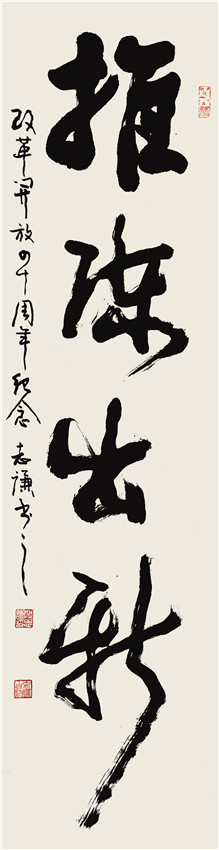 推陈出新
改革开放四十周年纪念 志谦书之